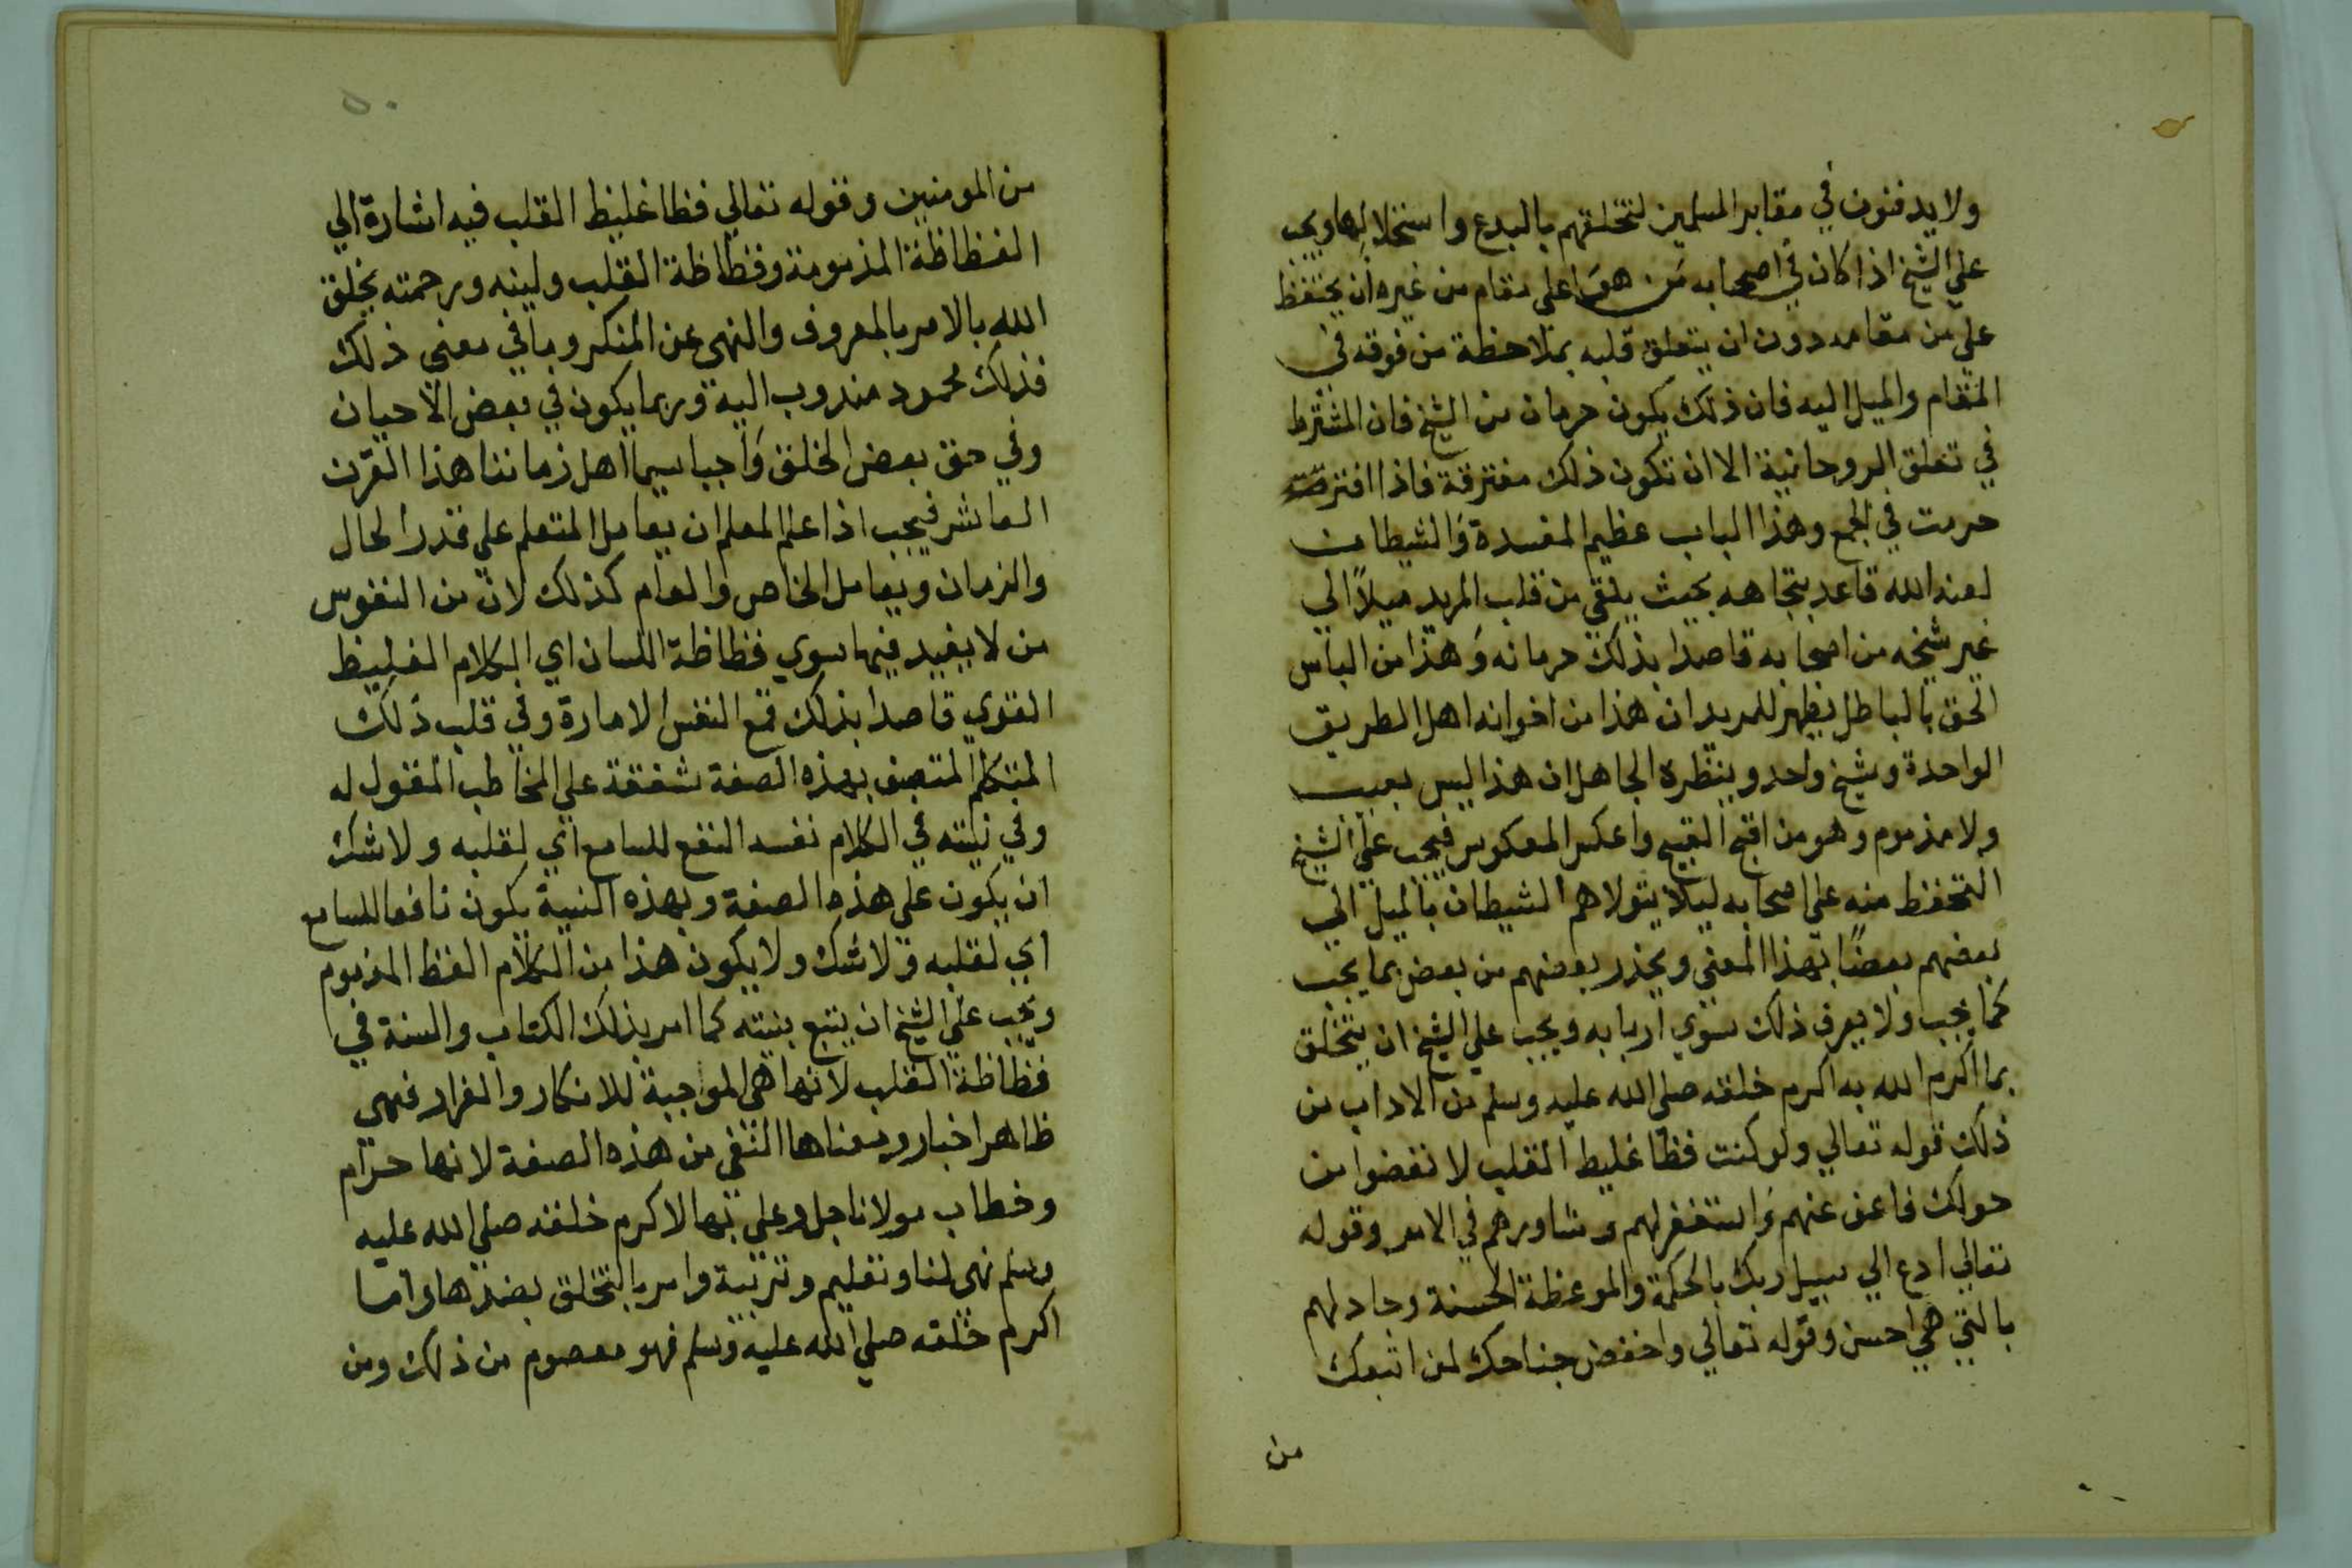 ولا يدفنون في مقابر المسلمين لتخلقهم بالبدع واستحلالها ويجب
علي الشيخ اذا كان في اصحابه من هو اعلي مقام من غيره ان يحتفظ
علي من مقامه دون ان يتعلق قلبه بملاحظة من فوقه في
المقام والميل اليه فان ذلك يكون حرمان من الشيخ فان المشترط
في تعلق الروحانية الا ان تكون ذلك مفترقة فاذا افترقت
حرمت في الجمع وهذا الباب عظيم المفسدة والشيطان
لعنه الله قاعد بتجاهه بحيث يلقي من قلب المريد ميلاً الي
غير شيخه من اصحابه قاصدا بذلك حرمانه وهذا من الباس
الحق بالباطل يظهر للمريد ان هذا من اخوانه اهل الطريق
الواحدة وشيخ واحد وينظره الجاهل ان هذا ليس بعيب
ولا مذموم وهو من اقبح القبيح واعكس المعكوس فيجب علي الشيخ
التحفظ منه علي اصحابه ليلا يتولاهم الشيطان بالميل الي
بعضهم بعضًا بهذا المعني ويحذر بعضهم من بعض بما يجب
كما يجب ولا يعرف ذلك سوي اربابه ويجب علي الشيخ ان يتخلق
بما اكرم الله به اكرم خلقه صلي الله عليه وسلم من الاداب من
ذلك قوله تعالي ولو كنت فظا غليظ القلب لا نفضوا من
حولك فاعف عنهم واستغفر لهم وشاورهم في الامر وقوله
تعالي ادع الي سبيل ربك بالحكمة والموعظة الحسنة وجادلهم
بالتي هي احسن وقوله تعالي واخفض جناحك لمن اتبعك
من
٥٠
من المومنين وقوله تعالي فظا غليظ القلب فيه اشارة الي
الفظاظة المذمومة وفظاظة القلب ولينه ورحمته بخلق
الله بالامر بالمعروف والنهي عن المنكر وما في معني ذلك
فذلك محمود مندوب الية وربما يكون في بعض الاحيان
وفي حق بعض الخلق واجبا سيما اهل زماننا هذا القرن
العاشر فيجب اذا علم المعلم ان يعامل المتعلم علي قدر الحال
والزمان ويعامل الخاص والعام كذلك لان من النفوس
من لا يفيد فيها سوي فظاظة اللسان اي الكلام الغليظ
القوي قاصدا بذلك قمع النفس الامارة وفي قلب ذلك
المتكلم المتصف بهذه الصفة شفقة علي المخاطب المقول له
وفي نيته في الكلام نفسه النفع للسامع اي لقلبه ولا شك
ان يكون علي هذه الصفة وبهذه النية يكون نافعا للسامع
اي لقلبه ولا شك ولا يكون هذا من الكلام الفظ المذموم
ويجب علي الشيخ ان يتبع بنيته كما امر بذلك الكتاب والسنة في
فظاظة القلب لانها هي الموجبة للانكار والفرار فهي
ظاهرا خبار ومعناها النفي من هذه الصفة لانها حرام
وخطاب مولانا جل وعلي بها لاكرم خلقه صلي الله عليه
وسلم نهي لنا وتعليم وتربية وامر بالتخلق بضدها واما
اكرم خلقه صلي الله عليه وسلم فهو معصوم من ذلك ومن